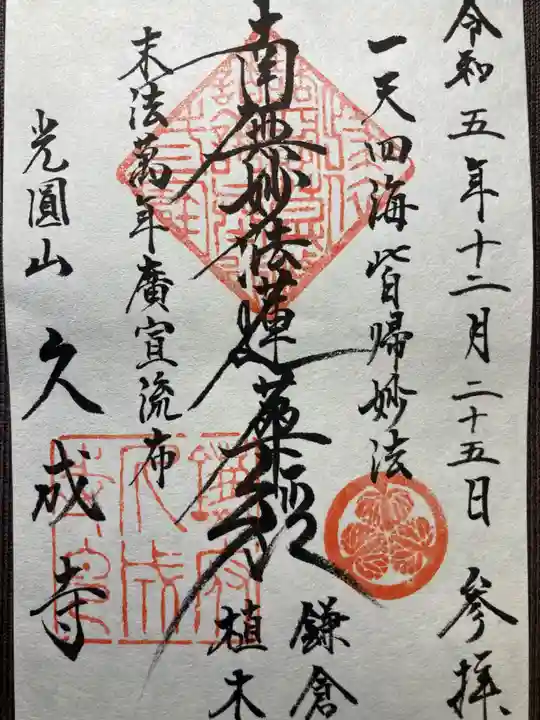 令和五年十二月二十五日 参拝
一天四海皆帰妙法
鎌倉
南無妙法蓮華経
植木
末法萬年廣宣流布
光圓山 久成寺